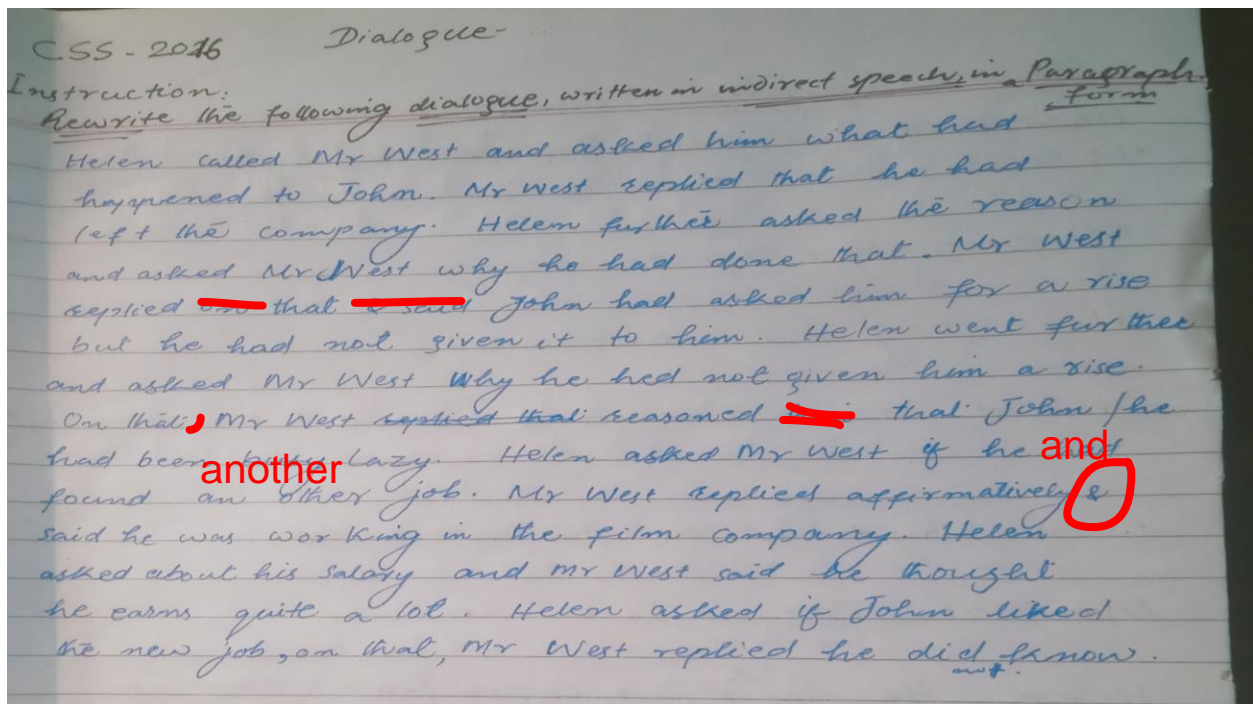 CSS - 2016 Dialogue-
Instruction:
Rewrite the following dialogue, written in indirect speech, in a Paragraph form
Helen called Mr West and asked him what had
happened to John. Mr West replied that he had
left the company. Helen further asked the reason
and asked Mr West why he had done that. Mr West
replied on that & said John had asked him for a rise
but he had not given it to him. Helen went further
and asked Mr West why he had not given him a rise.
On that, Mr West replied that reasoned that John / he
had been lazy. Helen asked Mr West if he
another and
found an other job. Mr West replied affirmatively &
said he was working in the film company. Helen
asked about his salary and Mr West said he thought
he earns quite a lot. Helen asked if John liked
the new job, on that, Mr West replied he did not know.